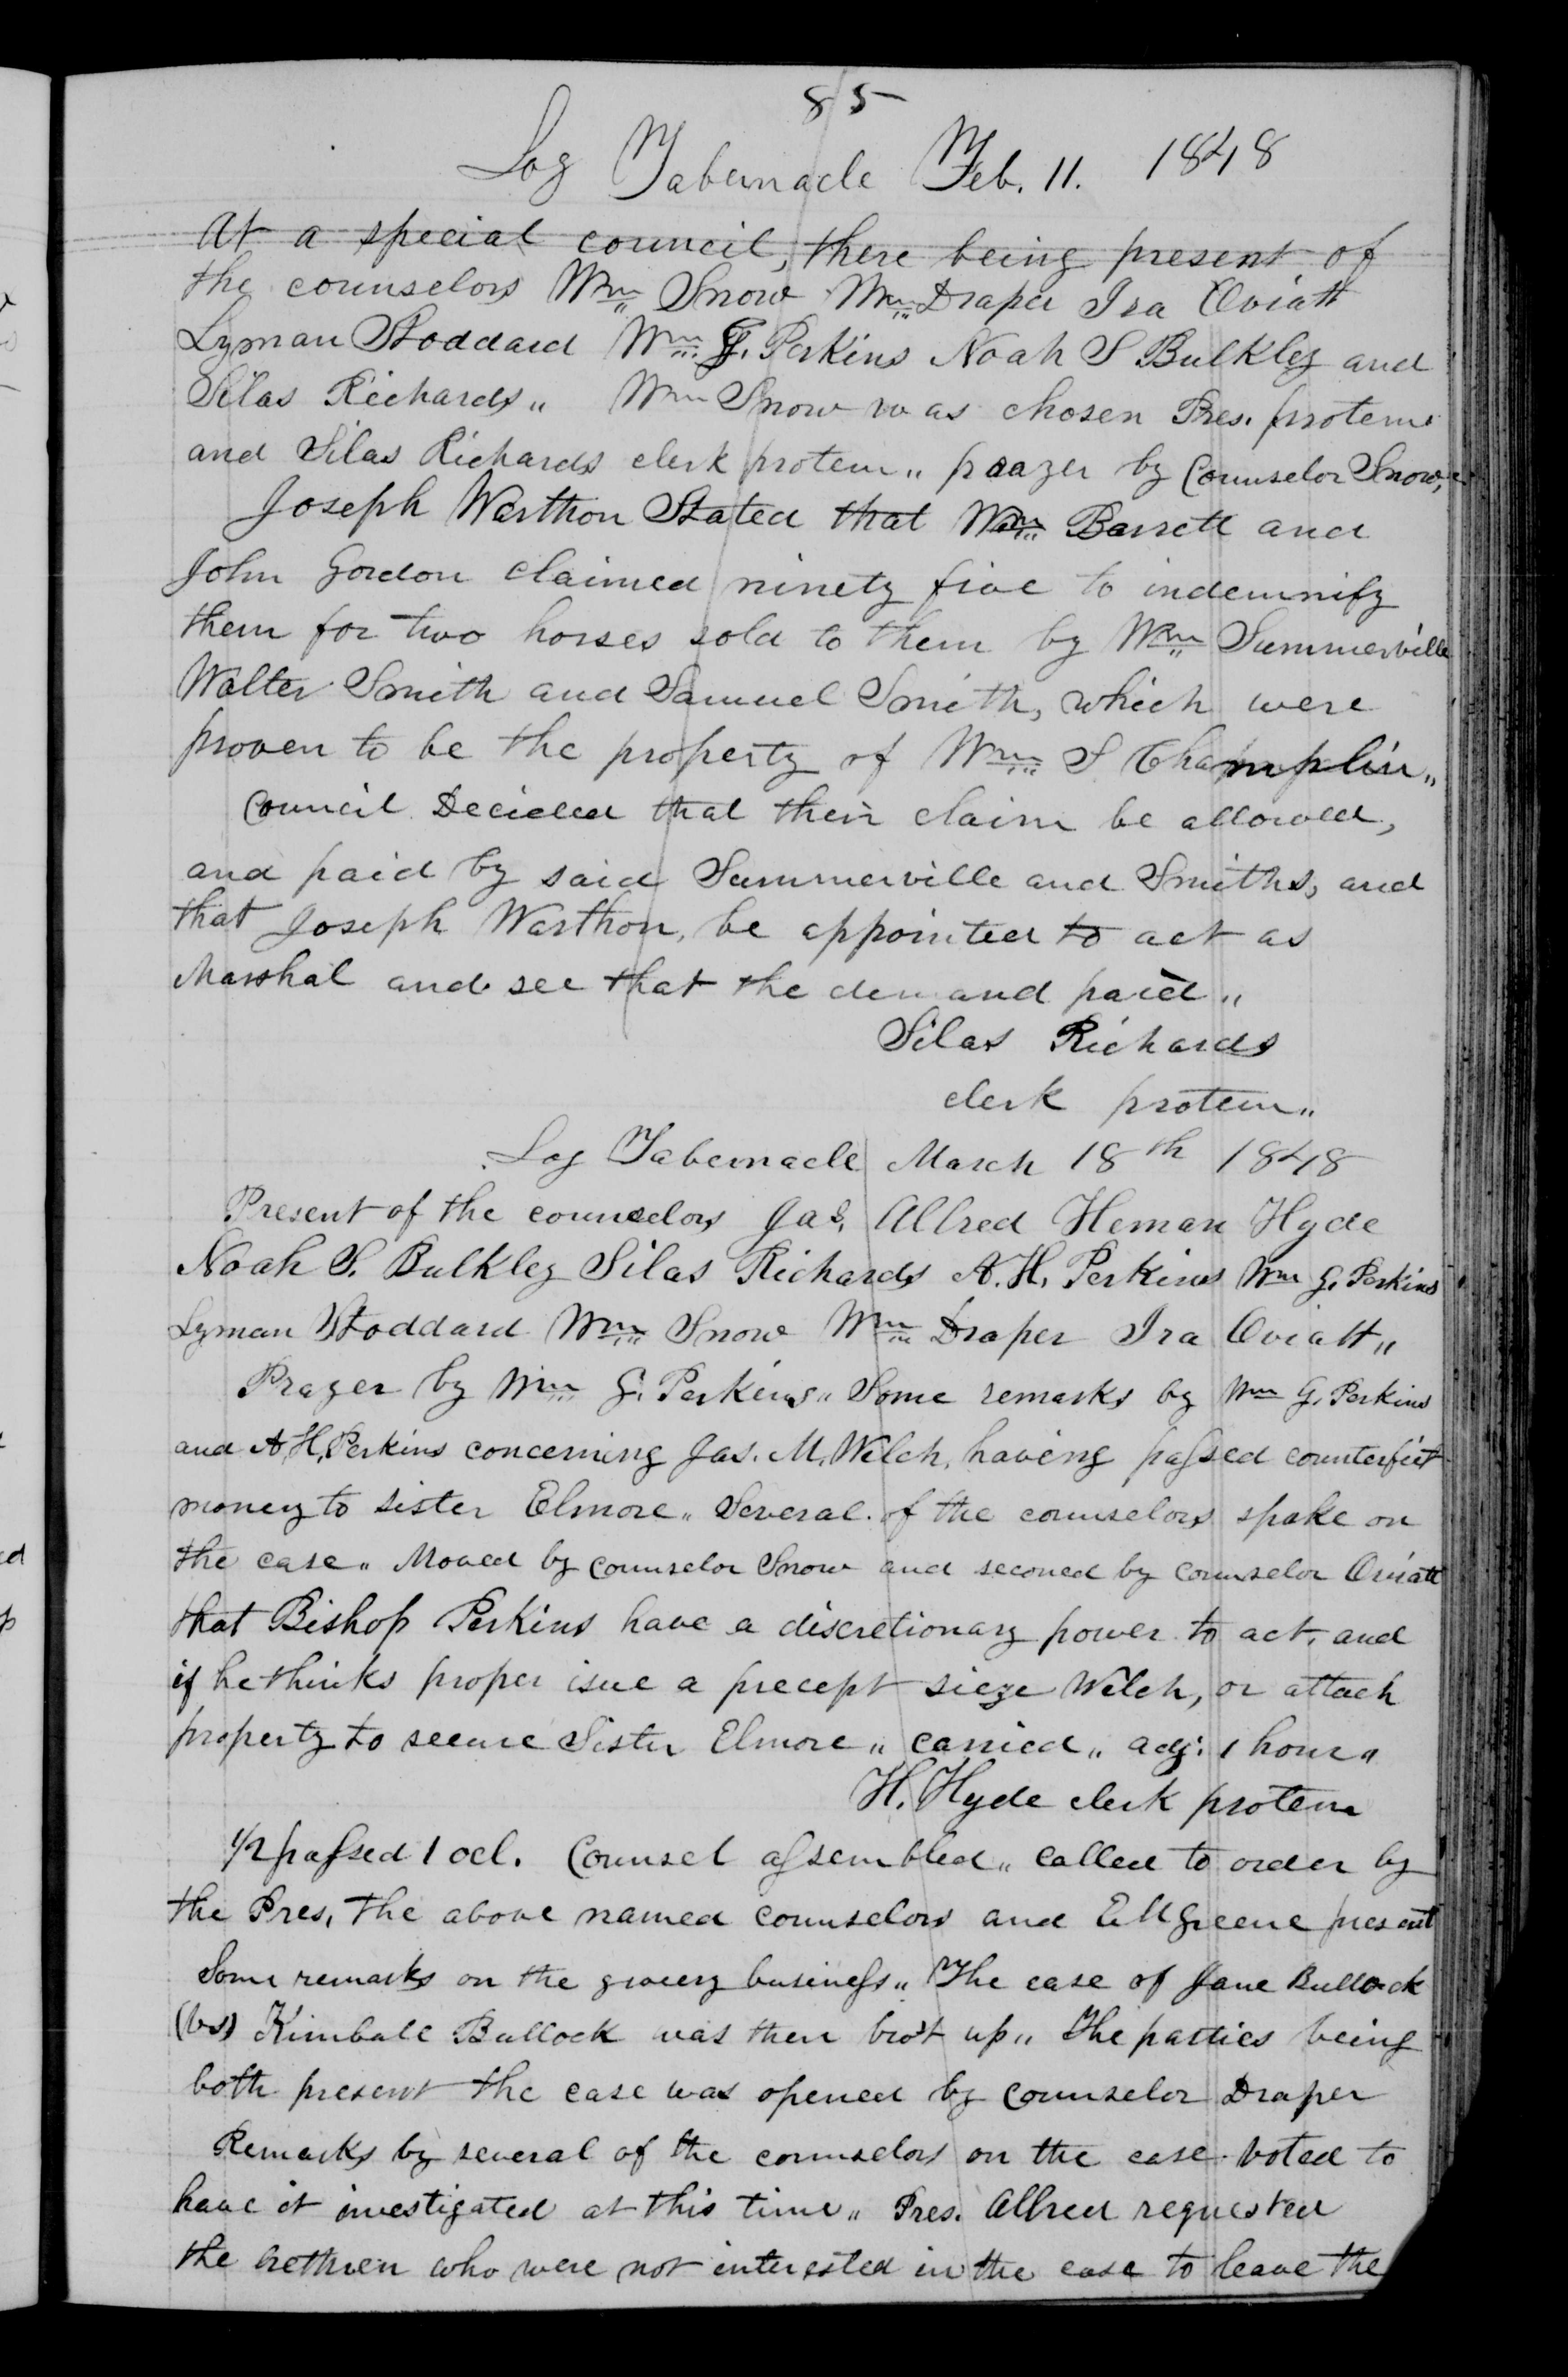 85
Log Tabernacle Feb. 11. 1848
At a special council, there being present of
the counselors Wm Snow Wm Draper Ira Oviatt
Lyman Stoddard Wm G. Perkins Noah S Bulkley and
Silas Richards „ Wm Snow was chosen Pres. protem
and Silas Richards clerk protem „ praayer by Counselor Snow,
Joseph Warthon Stated that Wm Barrett and
John Gordon claimed ninety five to indemnify
them for two horses sold to them by Wm Summerville
Walter Smith and Samuel Smith, which were
proven to be the property of Wm S Champlin „
Council Decided that their claim be allowed,
and paid by said Summerville and Smiths, and
that Joseph Warthon, be appointed to act as
Marshal and see that the demand paid „
Silas Richards
clerk protem „
Log Tabernacle March 18th 1848
Present of the counselors Jas. Allred Heman Hyde
Noah S. Bulkley Silas Richards A. H. Perkins Wm G. Perkins
Lyman Stoddard Wm Snow Wm Draper Ira Oviatt „
Prayer by Wm G. Perkins „ Some remarks by Wm G. Perkins
and A. H. Perkins concerning Jas. M. Welch, having passed counterfeit
money to sister Elmore „ Several of the counselors spake on
the case „ Moved by counselor Snow and seconed by counselor Oviatt
that Bishop Perkins have a discretionary power to act, and
if he thinks proper isue a precept sieze Welch, or attach
property to secure Sister Elmore „ carried „ adj. 1 hour „
H. Hyde clerk protem
1/2 passed 1 ocl. Counsel assembled „ called to order by
the Pres, The above named counselors and E M Greene present
Some remarks on the grocery business „ The case of Jane Bullock
(vs) Kimball Bullock was then bro't up „ The parties being
both present the case was opened by counselor Draper
Remarks by several of the counselors on the case voted to
have it investigated at this time „ Pres. Allred requested
the brethren who were not interested in the case to leave the